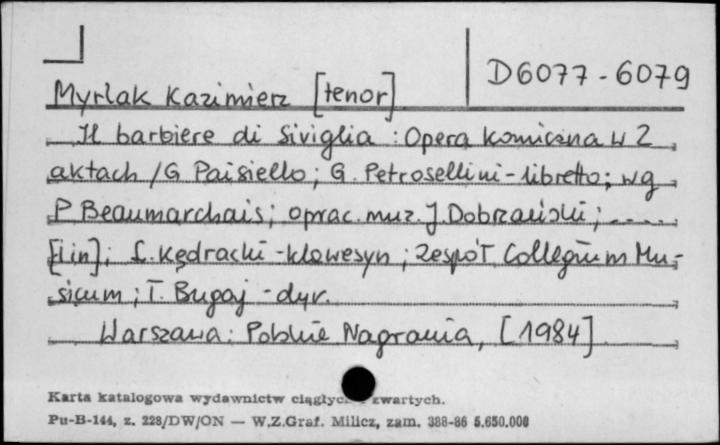 D6077-6079
Myrlak Kazimierz [tenor]
Il barbiere di Siviglia : Opera komiczna w 2
aktach / G Paisiello ; G. Petrosellini - libretto ; wg
P Beaumarchais ; oprac. muz. J. Dobrzański ; .....
[iin] ; L. Kędracki - klawesyn ; Zespół Collegium Mu-
sicum ; T. Bugaj - dyr.
Warszawa : Polskie Nagrania, [1984]
Karta katalogowa wydawnictw ciągłyc zwartych.
Pu-B-144, z. 228/DW/ON — W.Z.Graf. Milicz, zam. 388-86 5.650.000